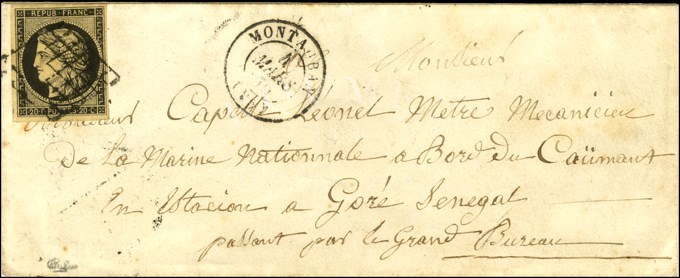 REPUB. FRANC.
20 C. POSTES 20 C.
MONTAUBAN
MARS
Monsieur
Monsieur Capet Léonet Metre Mecanicien
De La Marine Nationnale a Bord du Caümant
En Stacion a Goré Senegal
passant par le Grand Bureau